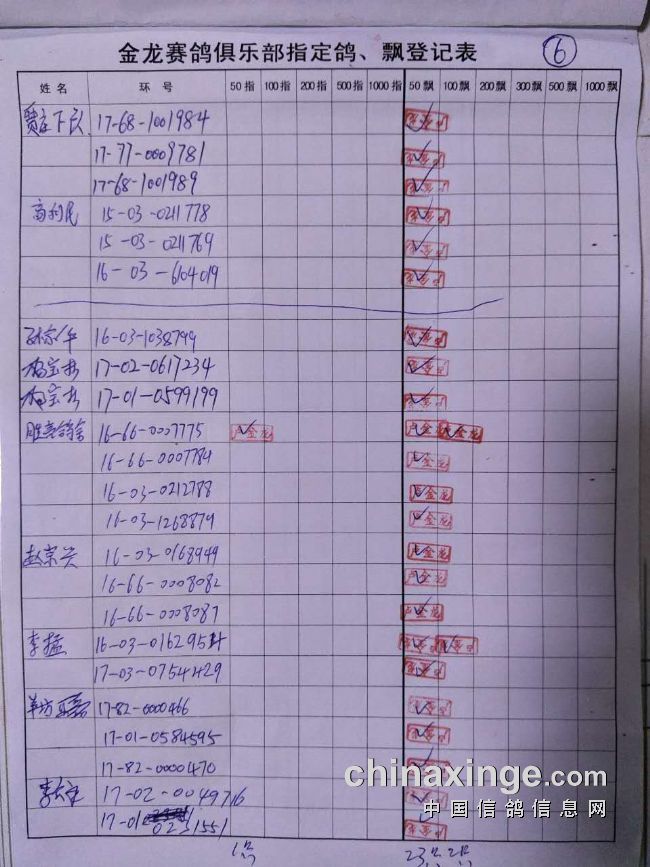 金龙赛鸽俱乐部指定鸽、飘登记表 ⑥
姓名 环号 50指 100指 200指 500指 1000指 50飘 100飘 200飘 300飘 500飘 1000飘
17-68-1001984
17-77-0009781
17-68-1001989
高利民 15-03-0211778
15-03-0211769
16-03-6104019
16-03-1038799
17-02-0617234
17-01-0599199
16-66-0007775 卢金龙 卢金龙 卢金龙
16-66-0007784 卢金龙
16-03-0212788 卢金龙
16-03-1268879 卢金龙
赵宗兴 16-03-0168949 卢金龙
16-66-0008082 卢金龙
16-66-0008087 卢金龙
李猛 16-03-0162954
17-03-0754429
17-82-0000466
17-01-0584595
17-82-0000470
17-02-0049716
17-01 0251551
chinaxinge.com
中国信鸽信息网